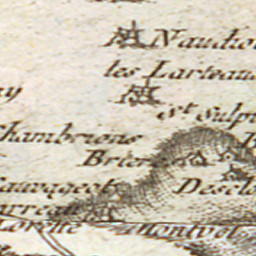 Naudio
les Larteau
ay
St Sulpi
Chambrions
Brier
Sauvageot
Desclo
Lorette
Montvol